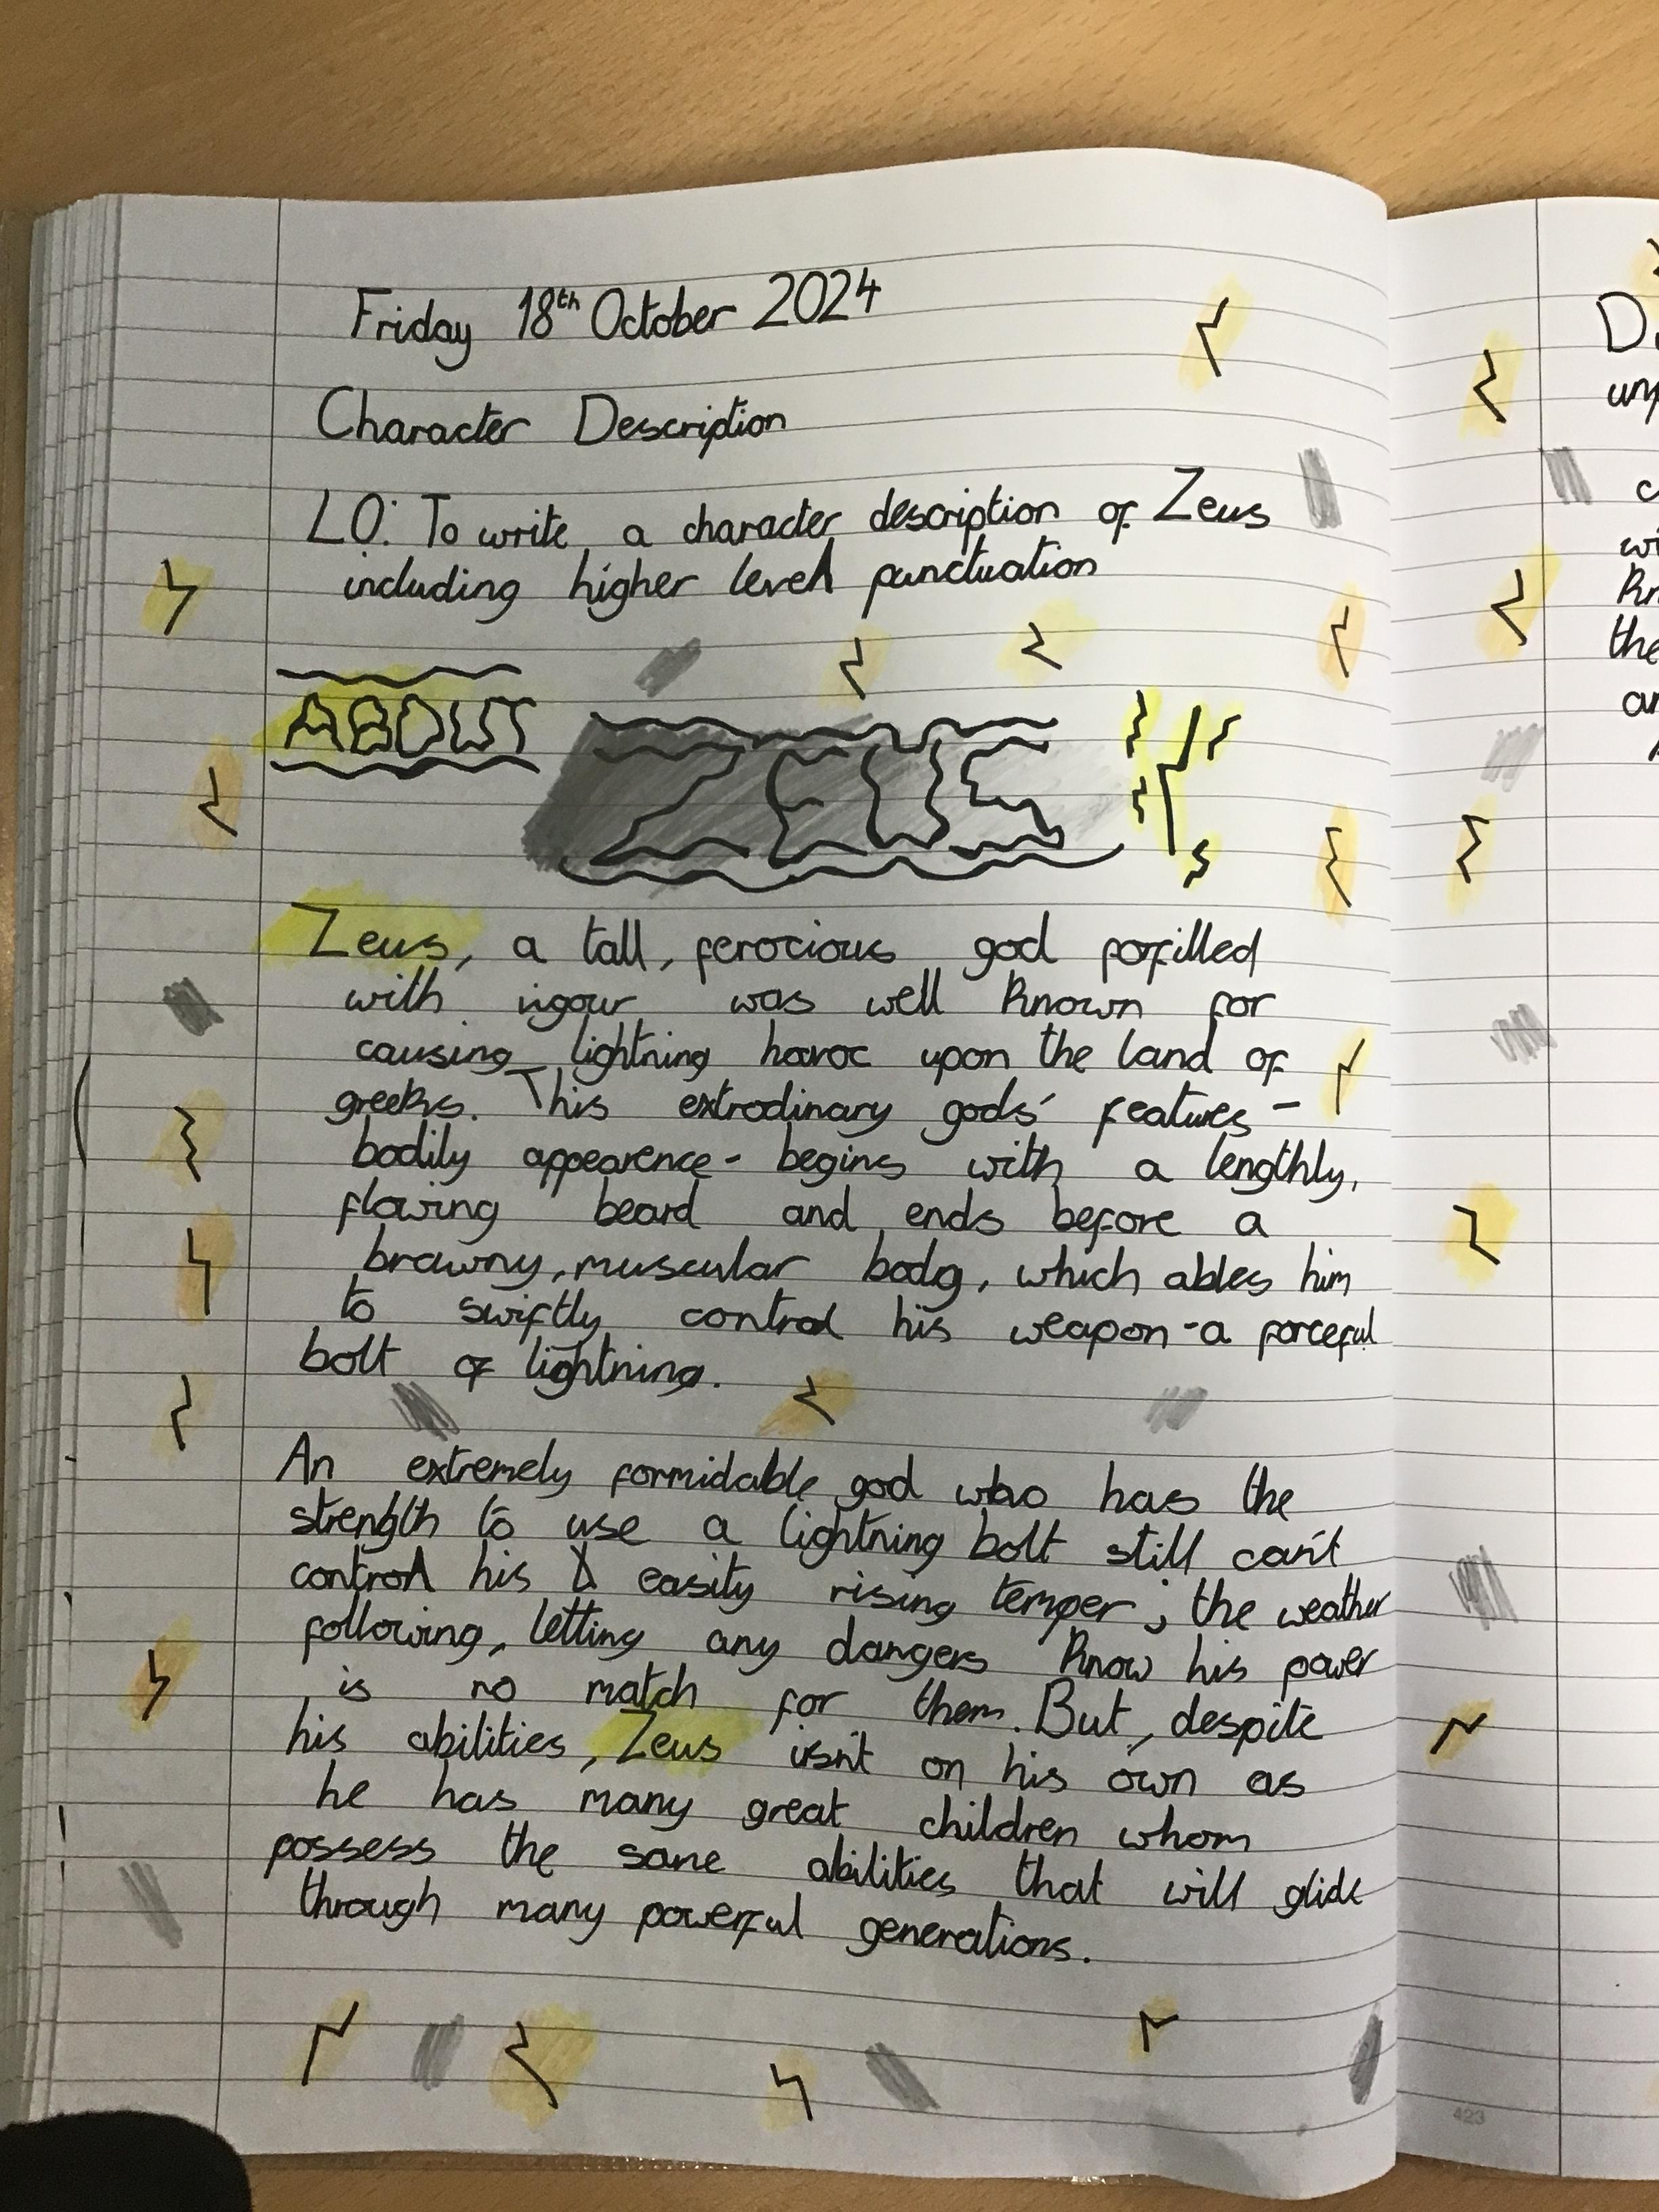 Friday 18th October 2024
Character Description
LO: To write a character description of Zeus
including higher level punctuation
ABOUT
ZEUS
Zeus, a tall, ferocious god porfilled
with vigour was well known for
causing lightning havoc upon the land of
greeks. This extrodinary gods' features -
bodily appearence - begins with a lengthly,
flowing beard and ends before a
brawny, muscular body, which ables him
to swiftly control his weapon - a forceful
bolt of lightning.
An extremely formidable god who has the
strength to use a lightning bolt still can't
control his easily rising temper; the weather
following, letting any dangers know his power
is no match for them. But, despite
his abilities, Zeus isn't on his own as
he has many great children whom
possess the same abilities that will glide
through many powerful generations.
423